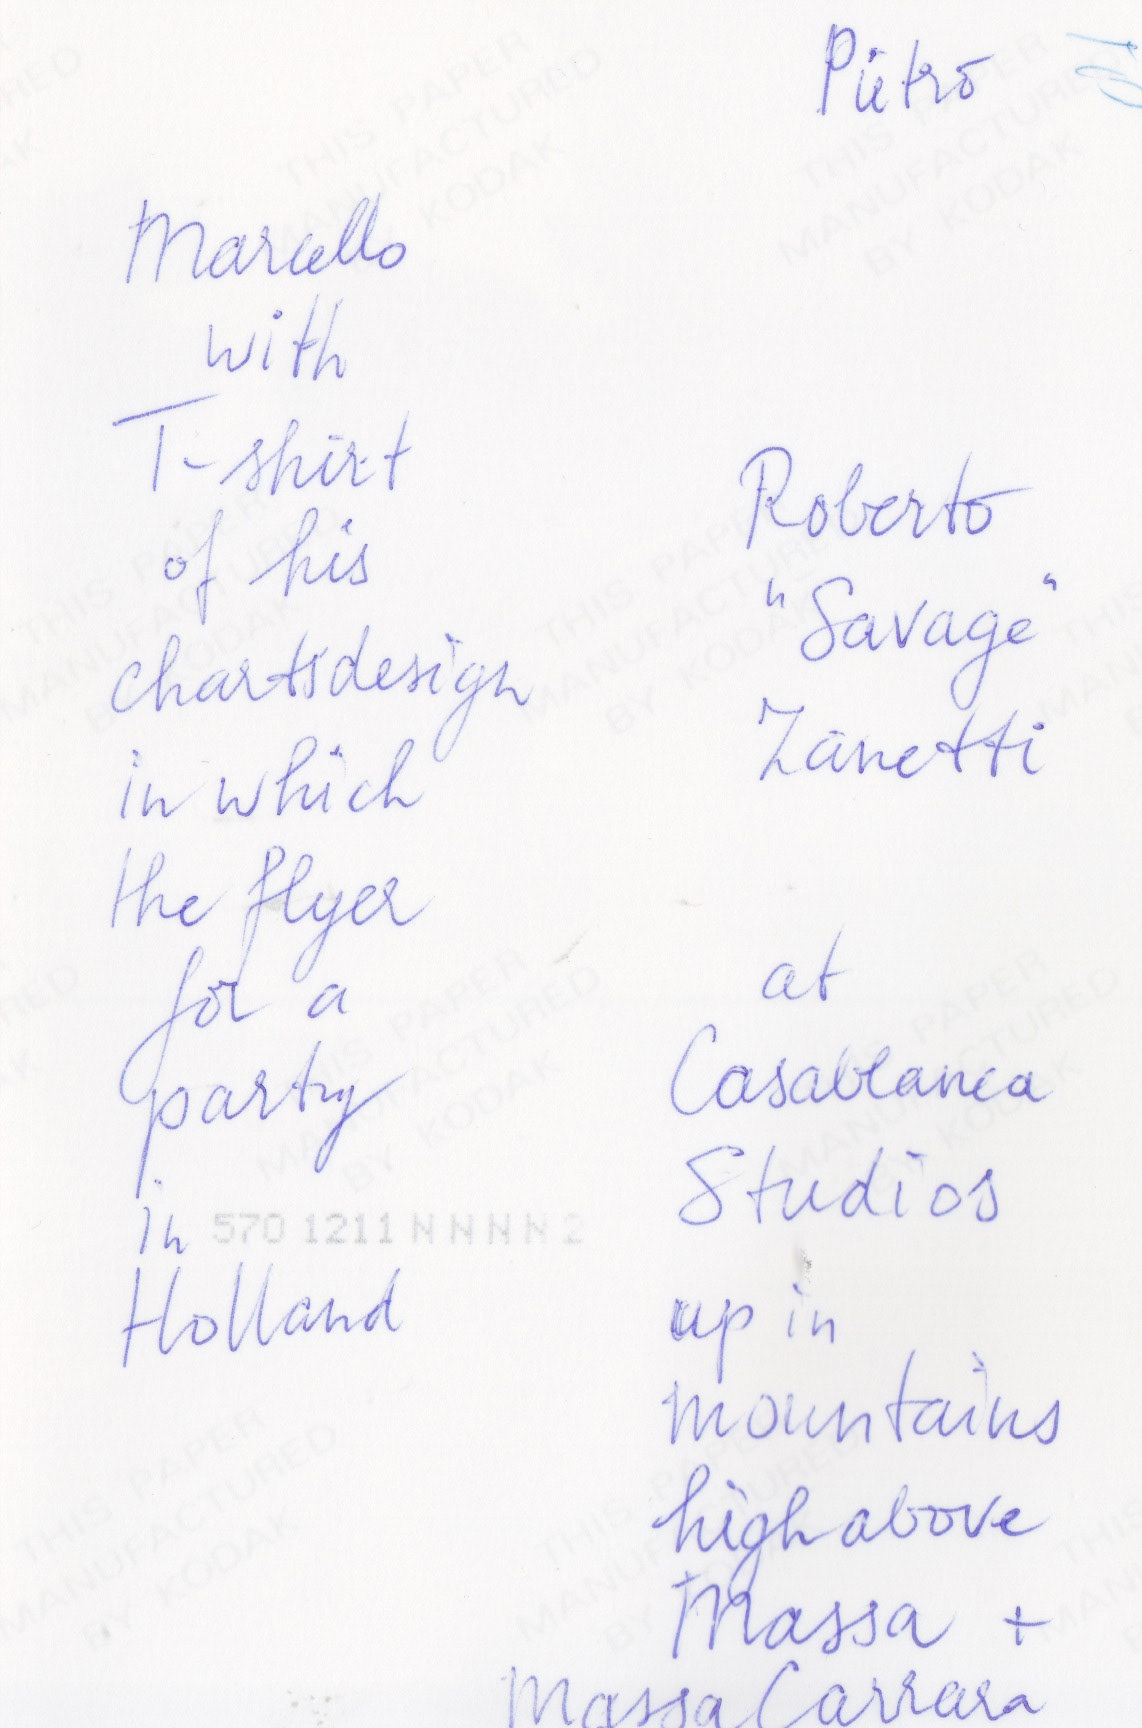 Pietro
Marcello
with
T-shirt
of his
chartsdesign
in which
the flyer
for a
party
in
Holland
Roberto
"Savage"
Zanetti
at
Casablanca
Studios
up in
mountains
high above
Massa +
Massa Carrara
570 1211 N N N N 2
THIS PAPER
MANUFACTURED
BY KODAK